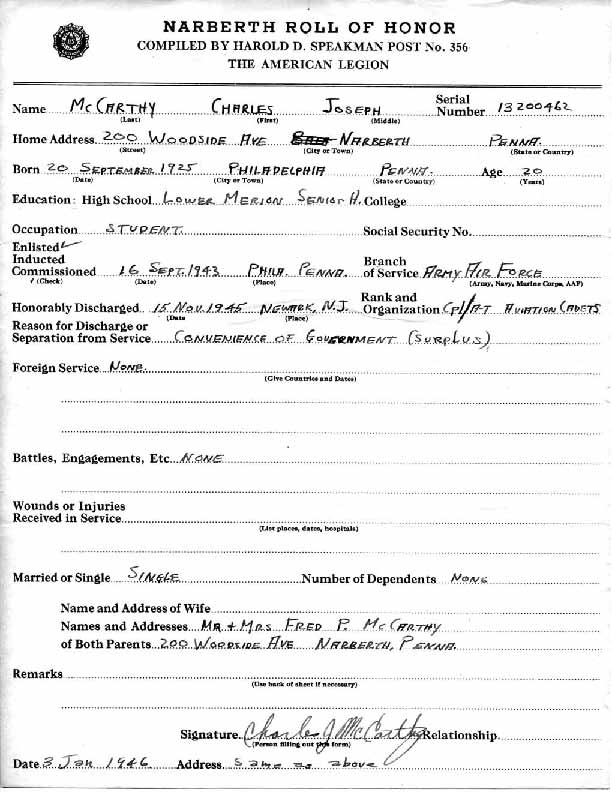 NARBERTH ROLL OF HONOR
COMPILED BY HAROLD D. SPEAKMAN POST No. 356
THE AMERICAN LEGION
Name McCARTHY CHARLES JOSEPH Serial Number 13200462
(Last) (First) (Middle)
Home Address 200 WOODSIDE AVE NARBERTH PENNA.
(Street) (City or Town) (State or Country)
Born 20 SEPTEMBER 1925 PHILADELPHIA PENNA. Age 20
(Date) (City or Town) (State or Country) (Years)
Education: High School LOWER MERION SENIOR H. College
Occupation STUDENT Social Security No.
Enlisted ✓
Inducted Branch
Commissioned 16 SEPT. 1943 PHILA. PENNA. of Service ARMY AIR FORCE
✓ (Check) (Date) (Place) (Army, Navy, Marine Corps, AAF)
Rank and
Honorably Discharged 15 NOV. 1945 NEWARK, N.J. Organization Cpl/A-T AVIATION CADETS
(Date (Place)
Reason for Discharge or
Separation from Service CONVENIENCE OF GOVERNMENT (SURPLUS)
Foreign Service NONE.
(Give Countries and Dates)
Battles, Engagements, Etc NONE
Wounds or Injuries
Received in Service
(List places, dates, hospitals)
Married or Single SINGLE Number of Dependents NONE
Name and Address of Wife
Names and Addresses MR + MRS FRED P. McCARTHY
of Both Parents 200 WOODSIDE AVE NARBERTH, PENNA.
Remarks
(Use back of sheet if necessary)
Signature Charles J McCarthy Relationship
(Person filling out this form)
Date 3 Jan 1946 Address Same as above